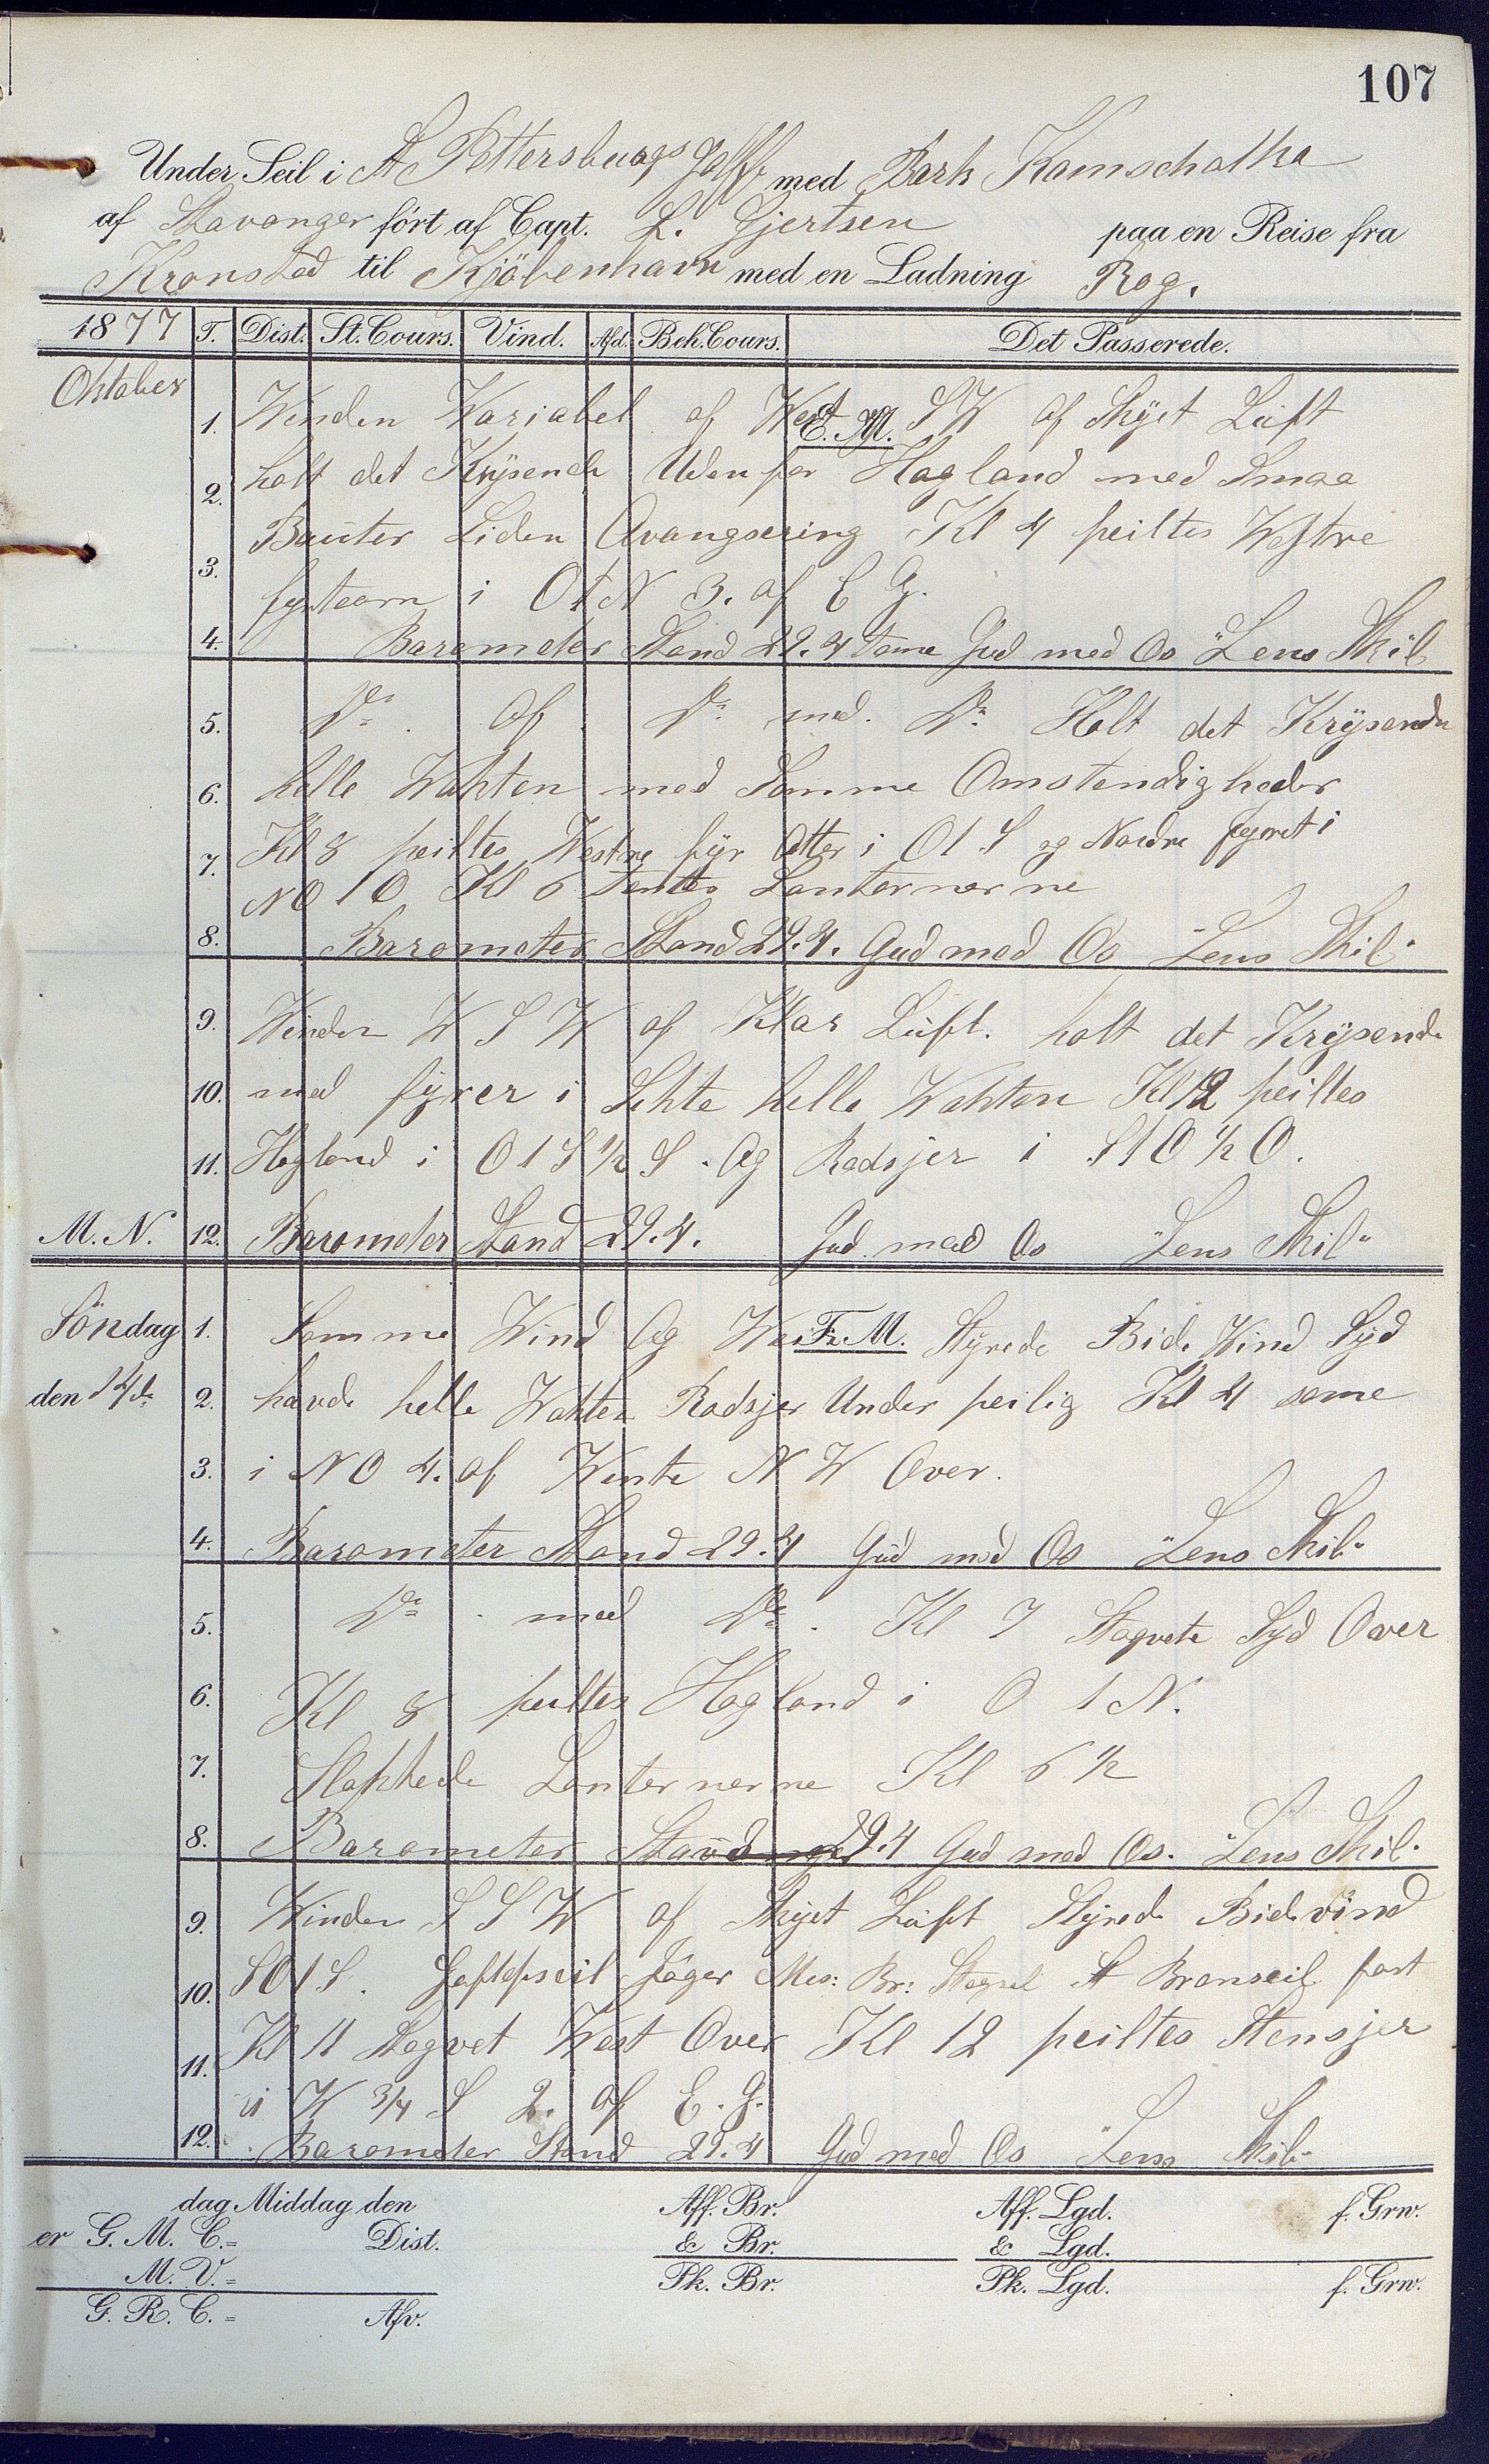 107
Under Seil i St Pettersburgs Golff med Bark Kamschatka
af Stavanger fört af Capt. L. Gjertsen paa en Reise fra
Kronsted til Kjöbenhavn med en Ladning Rog.
1877 T. Dist. St. Cours. Vind. Afd. Beh. Cours. Det Passerede.
Oktober
E. M.
1. Winden Wariabel af West og SW af Skyet Luft
2. holt det Krÿsende Uden for Hogland med Smaa
Bauter Liden Avangsering Kl 4 peiltes Westre
3. fyrtaarn i O t N 3. af E G.
4. Barometer Stand 29.4 Tome Gud med Os Lens Skib
5. Do. Af Do. med. Do. Holt det Krÿsende
6. helle Wahten med Somme Omstendigheder
7. Kl 8 peiltes Westre fÿr Atter i O t S og Nordre fyret i
NO t O Kl 6 Tentes Lanternerne
8. Barometer Stand 29.4. Gud med Os Lens Skib
9. Winden W S W af Klar Luft. holt det Krÿsende
10. med fÿrer i Sikte helle Wahten Kl 12 peiltes
11. Hogland i O t S ½ S. Og Rodsjer i S t O ½ O.
M. N. 12. Barometer Stand 29.4. Gud med Os Lens Skib
Söndag 1. Somme Wind Og F. M. Styrede Bide Wind Syd
den 14de 2. havde helle Wahten Rodsjer Under peilig Kl 4 same
3. i N O 4. af Wente N W Over.
4. Barometer Stand 29.4 Gud med Os Lens Skib
5. Do. med Do. Kl 7 Stagvete Syd Over
6. Kl 8 peiltes Hogland i O t N.
7. Slaktede Lanternerne Kl 6 ½
8. Barometer Stand 29.4 Gud med Os. Lens Skib
9. Winden S S W af Skyet Luft Styrede Bidevind
10. SO t S. Gaftopseil Jager Mes: Br: Stagsel St Bramseil fast
11. Kl 11 Stagvet West Over Kl 12 peiltes Stensjer
i W ¾ S 2. af E. G.
12. Barometer Stand 29.4 Gud med Os Lens Skib
dag Middag den Aff. Br. Aff. Lgd. f. Grw.
er G. M. C.= Dist. & Br. & Lgd.
M. V.= Pk. Br. Pk. Lgd. f. Grw.
G. R. C.= Afv.